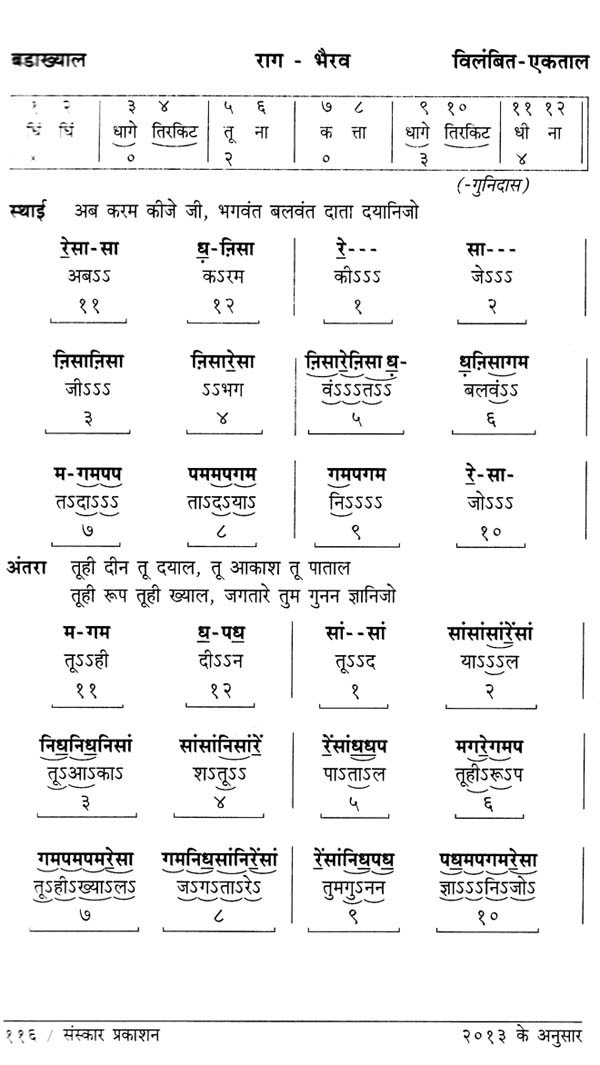 बडाख्याल राग - भैरव विलंबित-एकताल
१ २ ३ ४ ५ ६ ७ ८ ९ १० ११ १२
धिं धिं धागे तिरकिट तू ना क त्ता धागे तिरकिट धी ना
× ० २ ० ३ ४
(-गुनिदास)
स्थाई अब करम कीजे जी, भगवंत बलवंत दाता दयानिजो
रे॒सा-सा ध़॒-ऩिसा रे॒--- सा---
अबऽऽ कऽरम कीऽऽऽ जेऽऽऽ
११ १२ १ २
ऩिसाऩिसा ऩिसारे॒सा ऩिसारे॒ऩिसा ध़॒- ध़॒ऩिसागम
जीऽऽऽ ऽऽभग वंऽऽऽतऽऽ बलवंऽऽ
३ ४ ५ ६
म-गमपप पममपगम गमपगम रे॒-सा-
तऽदाऽऽऽ ताऽदऽयाऽ निऽऽऽऽ जोऽऽऽ
७ ८ ९ १०
अंतरा तूही दीन तू दयाल, तू आकाश तू पाताल
तूही रूप तूही ख्याल, जगतारे तुम गुनन ज्ञानिजो
म-गम ध॒-पध॒ सां--सां सांसांसांरें॒सां
तूऽऽही दीऽऽन तूऽऽद याऽऽऽल
११ १२ १ २
निध॒निध॒निसां सांसांनिसांरें॒ रें॒सांध॒ध॒प मगरे॒गमप
तूऽआऽकाऽ शऽतूऽऽ पाऽताऽल तूहीऽरूऽप
३ ४ ५ ६
गमपमपमरे॒सा गमनिध॒सांनिरें॒सां रें॒सांनिध॒पध॒ पध॒मपगमरे॒सा
तूऽहीऽख्याऽलऽ जऽगऽताऽरेऽ तुमगुऽनन ज्ञाऽऽऽनिऽजोऽ
७ ८ ९ १०
११६ / संस्कार प्रकाशन २०१३ के अनुसार